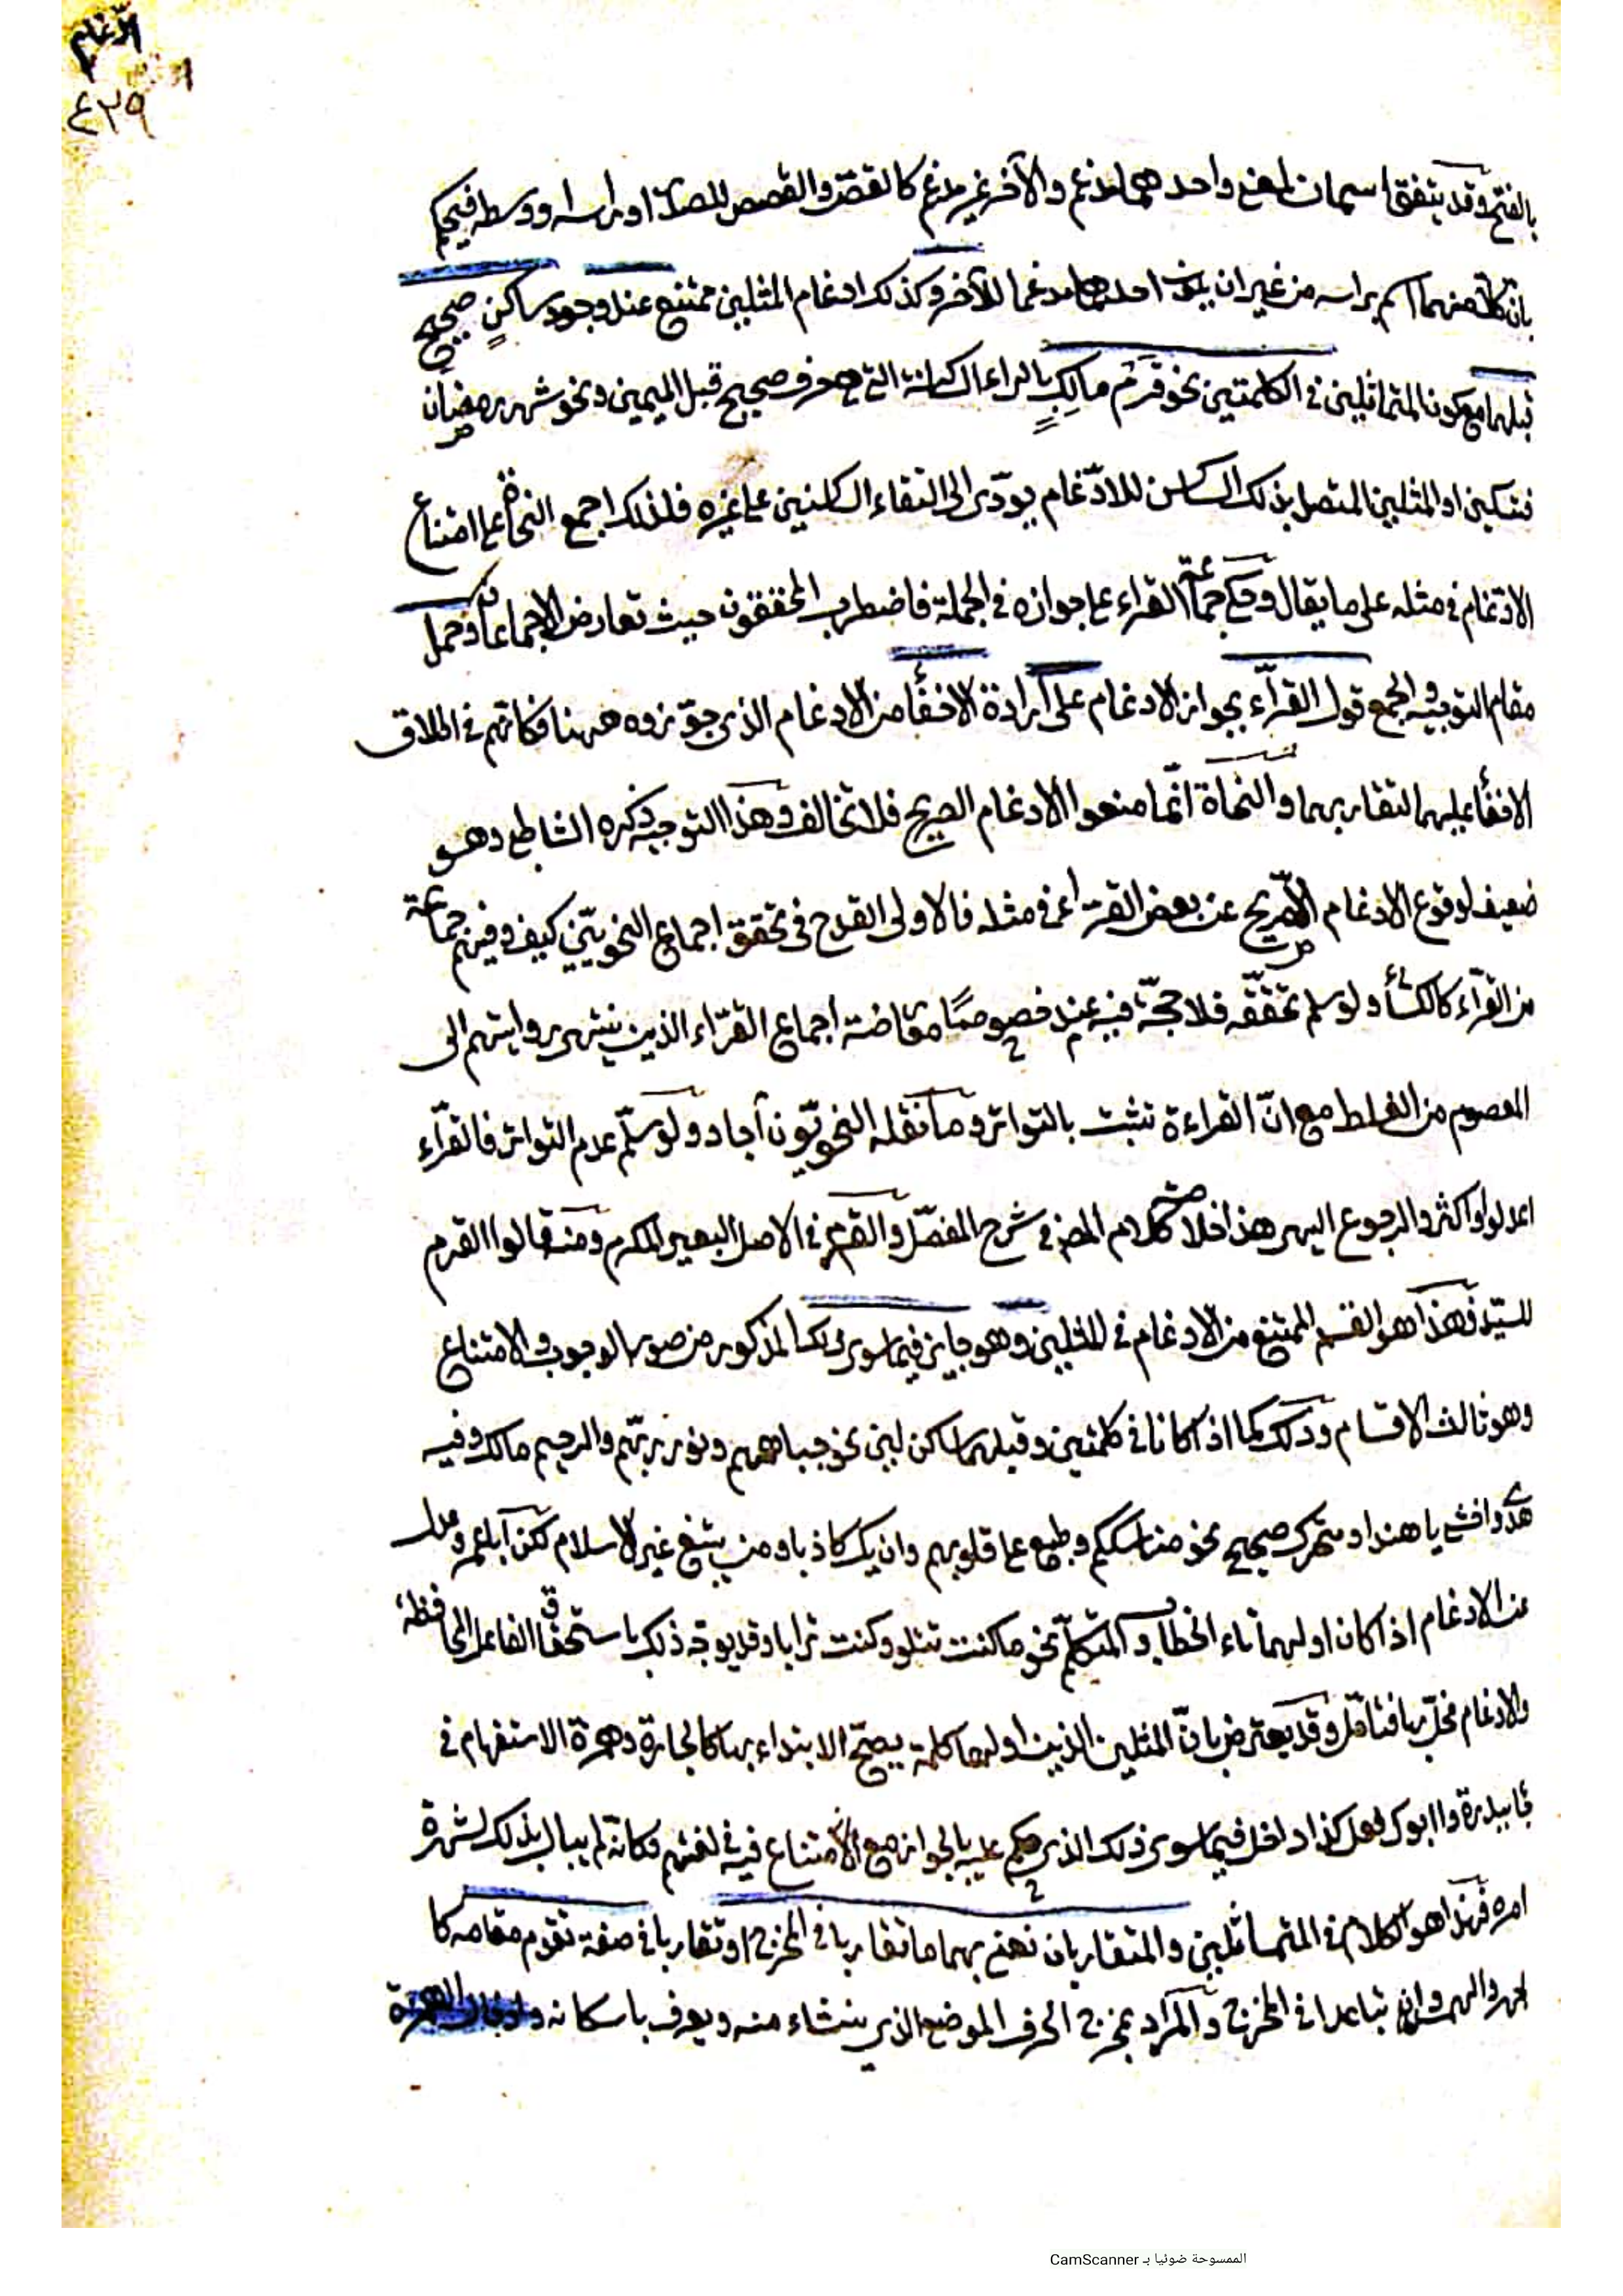 الادغام
٤٢٩
بالفتح وقد يتفق اسمان لمعنى واحد هما مدغم والآخر غير مدغم كالقص والقصص للصدر او راسه ووسطه فيحكم
بان كلا منهما اسم براسه من غير ان يكون احدهما مدغما للآخر وكذلك ادغام المثلين ممتنع عند وجود ساكن صحيح
قبلهما مع كون المتماثلين في الكلمتين نحو قرم مالك بالراء الساكنة التي هي حرف صحيح قبل الميمين ونحو شهر رمضان
فتسكين اول المثلين المتصل بذلك الساكن للادغام يودى الى التقاء الساكنين على غيره فلذلك اجمع النحاة على امتناع
الادغام في مثله على ما يقال وحكى جماعة القراء على جوازه في الجملة فاضطرب المحققون حيث تعارض الاجماعان وحمل
مقام التوجيه والجمع قول القراء بجواز الادغام على ارادة الاخفاء من الادغام الذي جوزوه ههنا فكانهم في اطلاق
الاخفاء عليهما لتقاربهما والنحاة انما منعوا الادغام الصريح فلا تخالف وهذا التوجيه ذكره الشاطبي وهو
ضعيف لوقوع الادغام الصريح عن بعض القراء في مثله فالاولى القدح في تحقق اجماع النحويين كيف وفيهم جماعة
من القراء كالكسائي ولو سلم تحققه فلا حجة فيه عند خصوصا مناقضة اجماع القراء الذين ينتهى روايتهم الى
المعصوم من الغلط مع ان القراءة تثبت بالتواتر وما نقله النحويون آحاد ولو سلم عدم التواتر فالقراء
اعدلوا واكثر والرجوع اليهم هذا خلاصة كلام المص في شرح المفصل والقرم في الاصل البعير المكرم ومنه قالوا القرم
للسيد فهذا هو القسم الممتنع من الادغام في المثلين وهو جايز فيما سوى ذلك المذكور من صور الوجوب والامتناع
وهو ثالث الاقسام وذلك كما اذا كانا في كلمتين وقبلهما ساكن لين نحو جباههم ونور ربهم والرحيم مالك وفيه
هدى واخشى ياهند او متحرك صحيح نحو مناسككم وطبع على قلوبهم وان يك كاذبا ومن يبتغ غير الاسلام لكن
عن الادغام اذا كان اولهما تاء الخطاب والمتكلم نحو ما كنت تتلو وكنت ترابا وقد يوجه ذلك باستحقاق الفاعل المحافظة
والادغام مخل بها فتأمل وقد يعترض بان المثلين الذين اولهما كلمة يصح الابتداء بها كالجارة وهمزة الاستفهام في
وا ابوك فعل كذا داخل فيما سوى ذلك الذي حكم عليه بالجواز مع الامتناع فيه في لغتهم فكانه لم يبال بذلك لشهرة
امره فهذا هو الكلام في المتماثلين والمتقاربان نعنى بهما ما تقاربا في المخرج او تقاربا في صفة تقوم مقامه كا
لجهر والهمس وان تباعدا في المخرج والمراد بمخرج الحرف الموضع الذي ينشاء منه ويعرف باسكانه وادخال الهمزة
الممسوحة ضوئيا بـ CamScanner